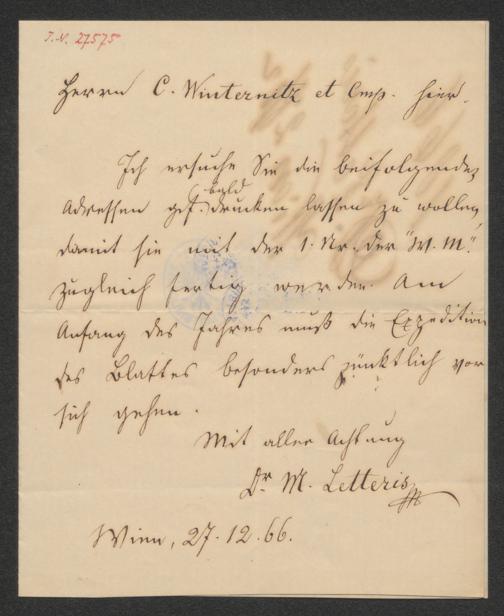 I.N. 27575
Herrn C. Winternitz et Cmp. hier.
Ich ersuche Sie die beifolgenden
Adressen gef. bald drucken lassen zu wollen,
damit sie mit der 1. Nr. der "W. M."
zugleich fertig werden. Am
Anfang des Jahres muß die Expedition
des Blattes besonders pünktlich vor
sich gehen.
Mit aller Achtung
Dr. M. Letteris
Wien, 27.12.66.